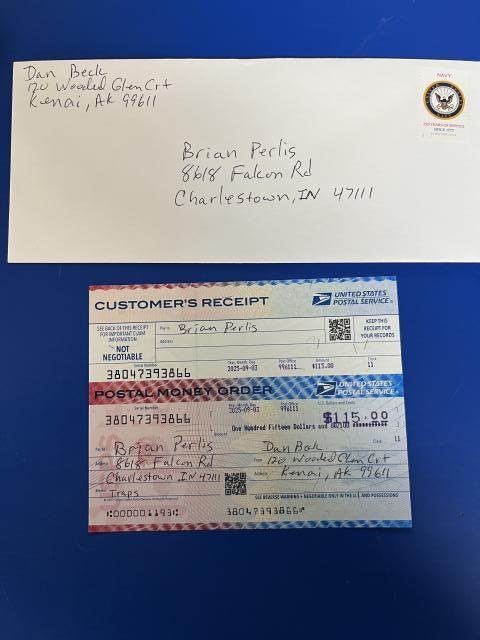 Dan Beck
120 Wooded Glen Crt
Kenai, AK 99611
NAVY
250 YEARS OF SERVICE
SINCE 1775
Brian Perlis
8618 Falcon Rd
Charlestown, IN 47111
CUSTOMER'S RECEIPT
UNITED STATES
POSTAL SERVICE®
SEE BACK OF THIS RECEIPT
FOR IMPORTANT CLAIM
INFORMATION
NOT
NEGOTIABLE
Pay to Brian Perlis
Address
KEEP THIS
RECEIPT FOR
YOUR RECORDS
Serial Number Year, Month, Day Post Office Amount Clerk
38047393866 2025-09-03 996111 $115.00 11
POSTAL MONEY ORDER
UNITED STATES
POSTAL SERVICE®
Serial Number Year, Month, Day Post Office U.S. Dollars and Cents
38047393866 2025-09-03 996111 $115.00
One Hundred Fifteen Dollars and 00/100
Clerk 11
Pay to Brian Perlis
8618 Falcon Rd
Charlestown IN 47111
Memo Traps
From Dan Beck
120 Wooded Glen Crt
Address Kenai, AK 99611
SEE REVERSE WARNING • NEGOTIABLE ONLY IN THE U.S. AND POSSESSIONS
⑆000001193⑆ 38047393866⑈